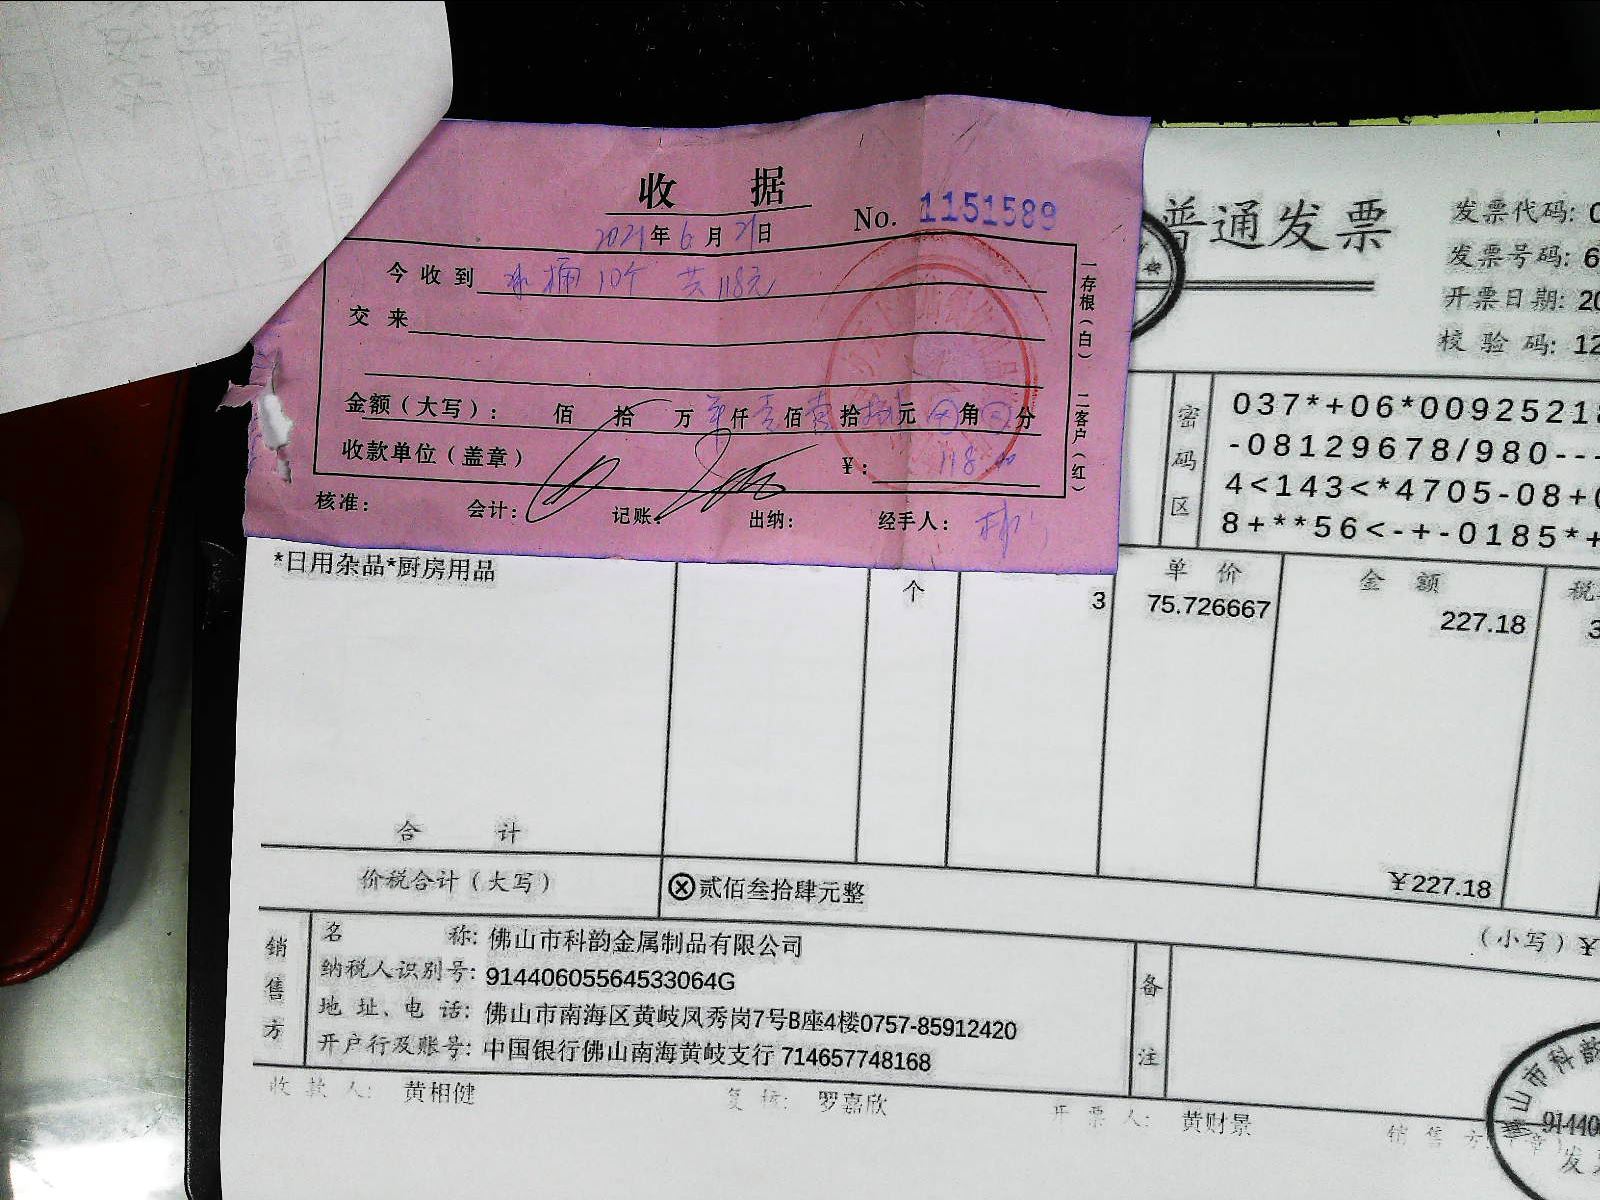 收 据
No. 1151589
2021年6月21日
今收到 水桶10个 共118元
交来
金额（大写）： 佰 拾 万 仟壹佰壹拾捌元 角 分
收款单位（盖章） ¥: 118.00
核准： 会计： 记账： 出纳： 经手人：
一存根（白） 二客户（红）
普通发票
发票代码: 0
发票号码: 6
开票日期: 20
校 验 码: 12
密码区
037*+06*00925218
-08129678/980---
4<143<*4705-08+0
8+**56<-+-0185*+
单 价 金 额 税
*日用杂品*厨房用品 个 3 75.726667 227.18 3
合 计 ¥227.18
价税合计（大写） ⊗贰佰叁拾肆元整 （小写）¥
销售方
名 称: 佛山市科韵金属制品有限公司
纳税人识别号: 91440605564533064G
地 址、电 话: 佛山市南海区黄岐凤秀岗7号B座4楼0757-85912420
开户行及账号: 中国银行佛山南海黄岐支行 714657748168
备注
收 款 人: 黄相健 复 核: 罗嘉欣 开 票 人: 黄财景 销 售 方:（章）
山市科韵
91440
发